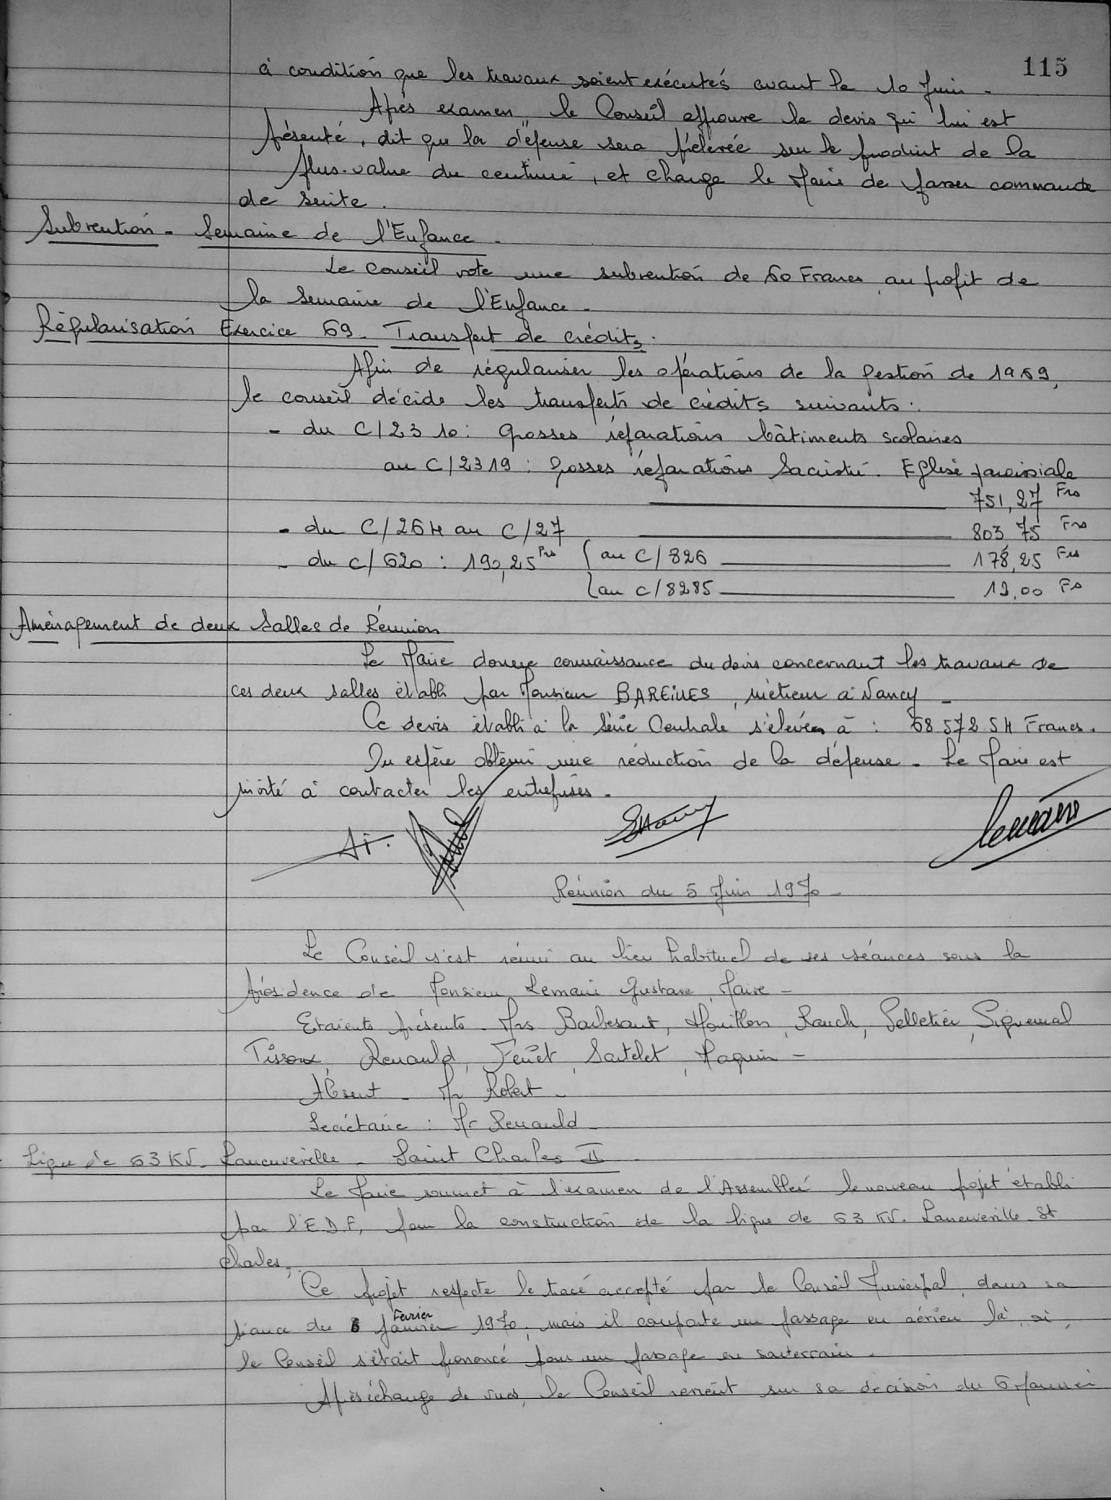 115
à condition que les travaux soient exécutés avant le 10 Juin.
Après examen, le Conseil approuve le devis qui lui est
présenté, dit que la dépense sera prélevée sur le produit de la
plus-value du centime, et charge le Maire de passer commande
de suite.
Subvention - Semaine de l'Enfance.
Le Conseil vote une subvention de 60 Francs au profit de
la Semaine de l'Enfance.
Régularisation Exercice 69 - Transfert de crédits.
Afin de régulariser les opérations de la gestion de 1969,
le conseil décide les transferts de crédits suivants :
- du C/2310 : Grosses réparations bâtiments scolaires
au C/2319 : Grosses réparations Sacristie. Eglise paroissiale
751,27 Frs
- du C/264 au C/27 803,75 Frs
- du C/620 : 190,25 Frs { au C/826 178,25 Frs
{ au C/8285 12,00 Fs
Aménagement de deux Salles de Réunion
Le Maire donne connaissance du devis concernant les travaux de
ces deux salles établi par Monsieur BAREILLES, métreur à Nancy.
Ce devis établi à la Série Centrale s'élève à : 68 572 54 Francs.
On espère obtenir une réduction de la dépense. Le Maire est
invité à contacter les entreprises.
Lemaire
Réunion du 5 Juin 1970 -
Le Conseil s'est réuni au lieu habituel de ses séances sous la
présidence de Monsieur Lemaire Gustave, Maire -
Etaients présents - Mrs Barbesant, Houillon, Rauch, Pelletier,
Tissoux, Renauld, Sartelet, Paquin -
Absent - Mr Robert -
Secrétaire : Mr Renauld -
Ligne de 63 KV - Laneuveville - Saint Charles II
Le Maire soumet à l'examen de l'Assemblée le nouveau projet établi
par l'E.D.F, pour la construction de la ligne de 63 KV. Laneuveville - St
Charles,
Ce projet respecte le tracé accepté par le Conseil Municipal, dans sa
séance du 6 Février 1970, mais il comporte un passage en aérien là, où,
le Conseil s'était prononcé pour un passage en souterrain.
Après échange de vues, le Conseil revient sur sa décision du 6 Janvier